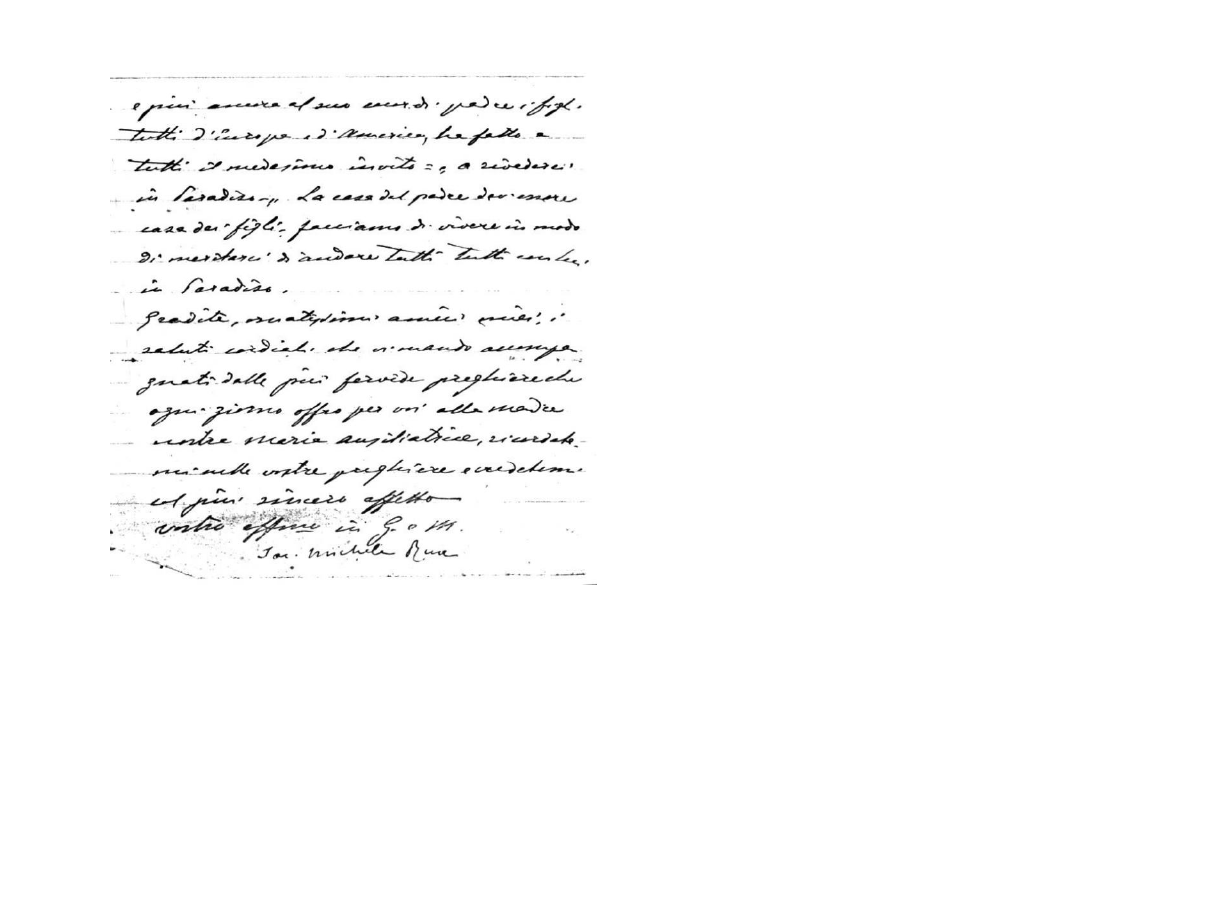 e più ancora al suo cuor di padre i figli
tutti d'Europa e d'America, ha fatto a
tutti il medesimo invito = a rivederci
in Paradiso =„ La casa del padre dev'essere
casa dei figli, facciamo di vivere in modo
di meritarci d'andare tutti tutti con lui
in Paradiso.
Gradite, ornatissimi amici miei, i
saluti cordiali che vi mando accompa
gnati dalle più fervide preghiere che
ogni giorno offro per voi alla madre
nostra Maria ausiliatrice, ricordate-
mi nelle vostre preghiere e credetemi
col più sincero affetto
vostro affmo in G. e M.
Sac. Michele Rua